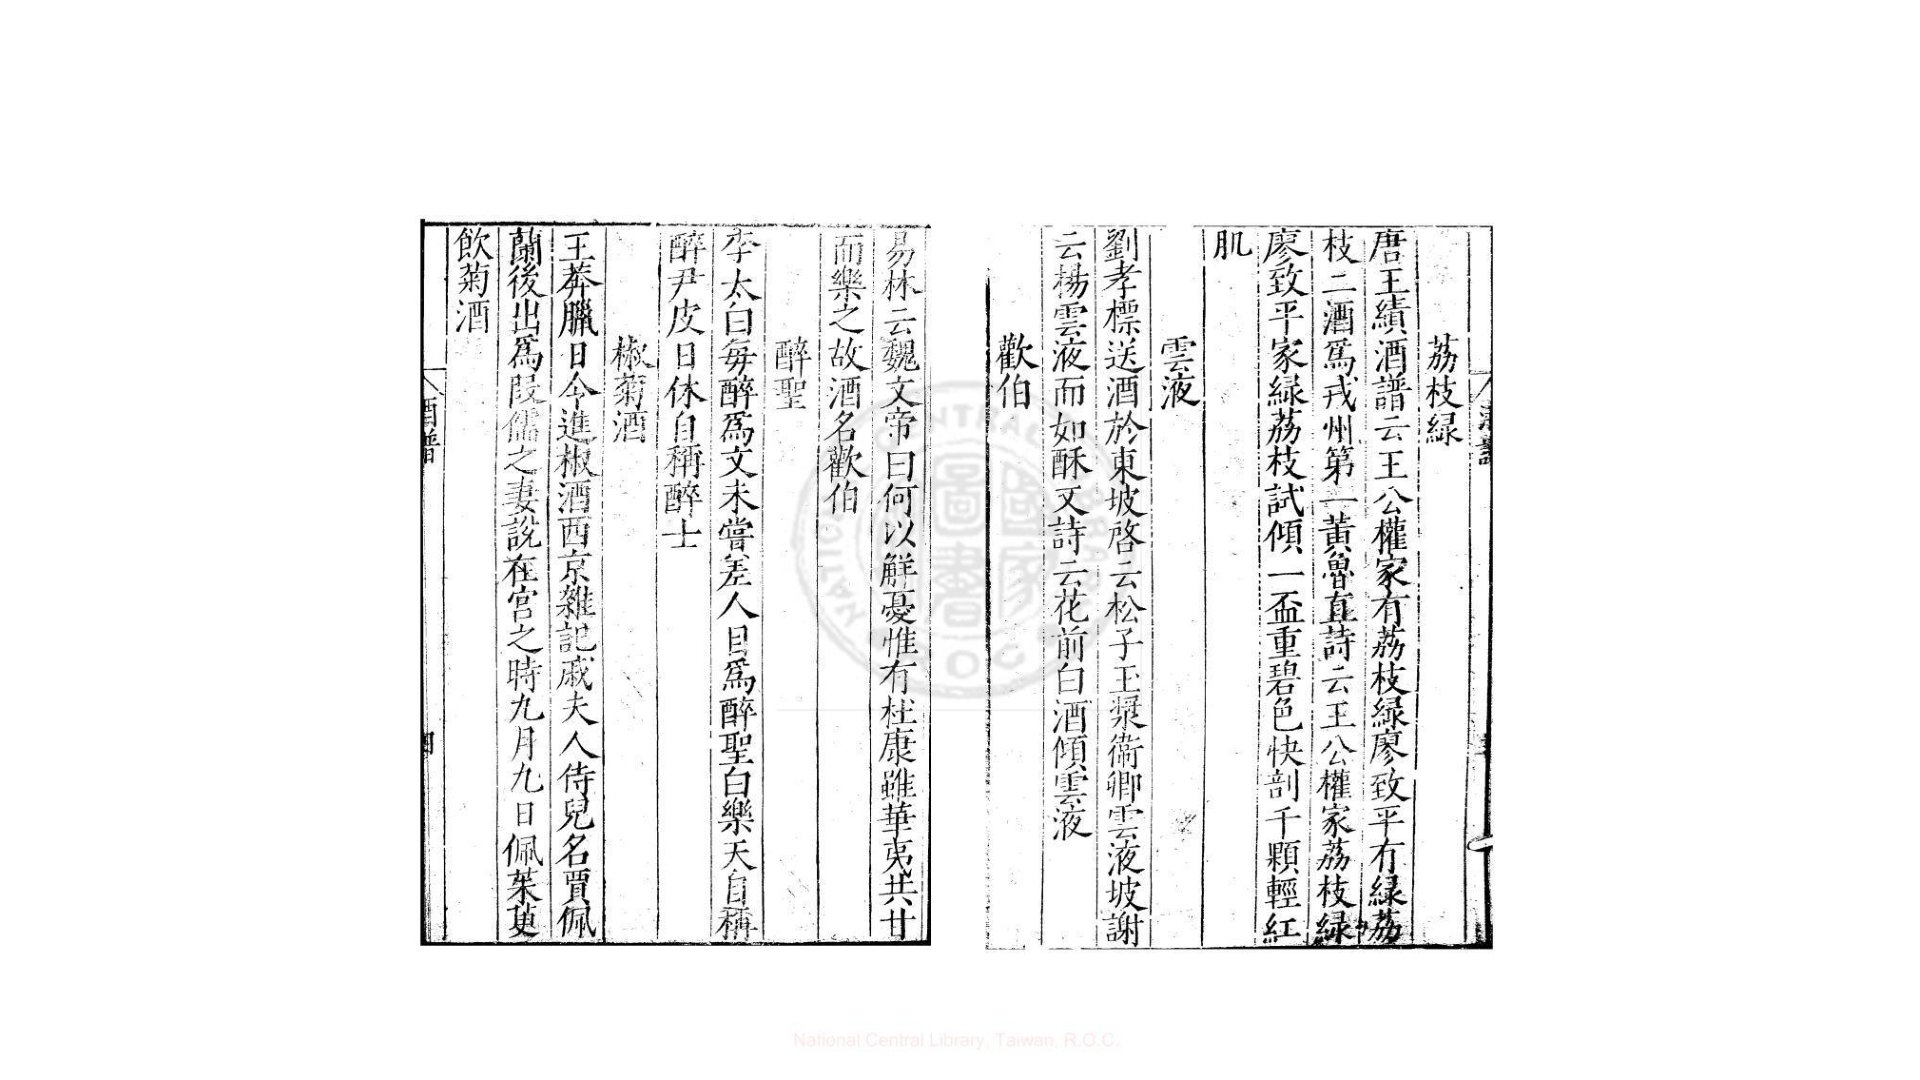 荔枝綠
唐王績酒譜云王公權家有荔枝綠廖致平有綠荔
枝二酒爲戎州第一黃魯直詩云王公權家荔枝綠
廖致平家綠荔枝試傾一盃重碧色快剖千顆輕紅
肌
雲液
劉孝標送酒於東坡啓云松子玉漿衛卿雲液坡謝
云楊雲液而如酥又詩云花前白酒傾雲液
歡伯
易林云魏文帝曰何以觧憂惟有杜康雖華夷共甘
而樂之故酒名歡伯
醉聖
李太白每醉爲文未嘗差人目爲醉聖白樂天自稱
醉尹皮日休自稱醉士
椒菊酒
王莽臘日今進椒酒西京雜記戚夫人侍兒名賈佩
蘭後出爲叚儒之妻說在宮之時九月九日佩茱萸
飲菊酒
酒譜
四
National Central Library, Taiwan, R.O.C.